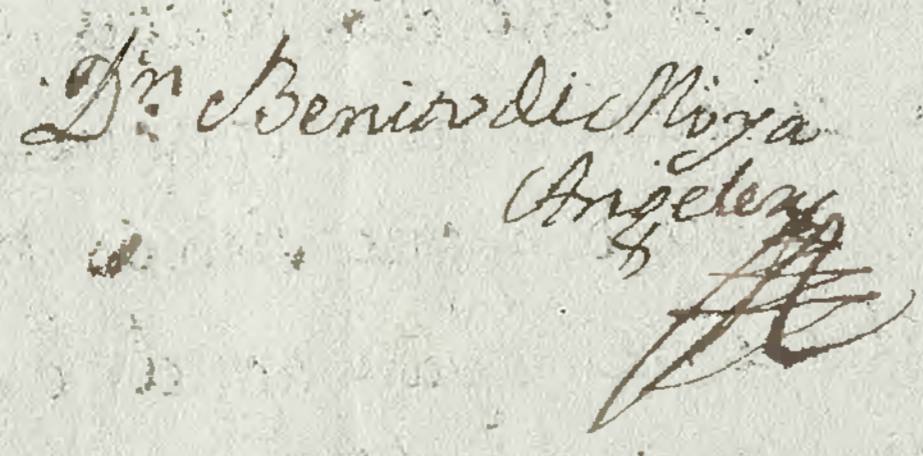 Dn. Benito de Moya
Angeles